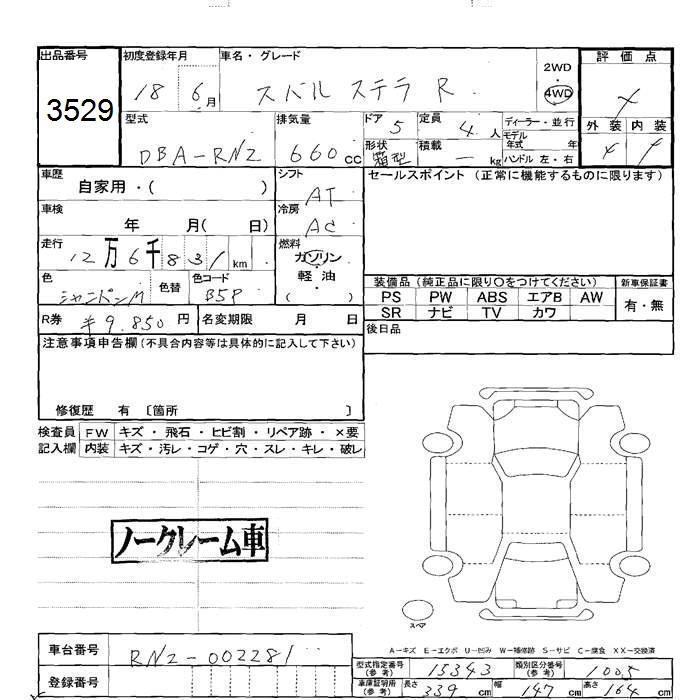 出品番号 初度登録年月 車名・グレード 2WD ・ 4WD 評価点
3529 18 6月 スバル ステラ R
外装 内装
型式 排気量 ドア 5 定員 4人 ディーラー・並行
DBA-RN2 660cc 形状 箱型 積載 — kg モデル年式 年
ハンドル 左・右
車歴 自家用・( ) シフト AT セールスポイント (正常に機能するものに限ります)
車検 年 月( 日) 冷房 AC
走行 12万6千831km 燃料 ガソリン・軽油 ( )
色 シャンパンM 色替 色コード B5P
装備品 (純正品に限り○をつけてください) 新車保証書
PS PW ABS エアB AW 有・無
SR ナビ TV カワ
R券 ¥9.850円 名変期限 月 日
後日品
注意事項申告欄 (不具合内容等は具体的に記入して下さい)
修復歴 有 〔箇所 〕
検査員 FW キズ・飛石・ヒビ割・リペア跡・×要
記入欄 内装 キズ・汚レ・コゲ・穴・スレ・キレ・破レ
ノークレーム車
スペア
A-キズ E-エクボ U-凹み W-補修跡 S-サビ C-腐食 XX-交換済
車台番号 RN2-002281
登録番号
型式指定番号 (参考) 15343 類別区分番号 (参考) 1005
車庫証明所 (参考) 長さ 339cm 幅 147cm 高さ 164cm